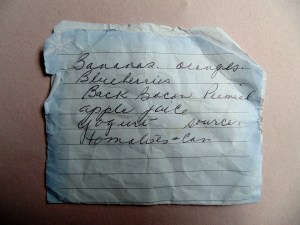 Bananas. oranges.
Blueberries
Back Bacon
apple juice
Yogurt source.
Tomatoes - Can